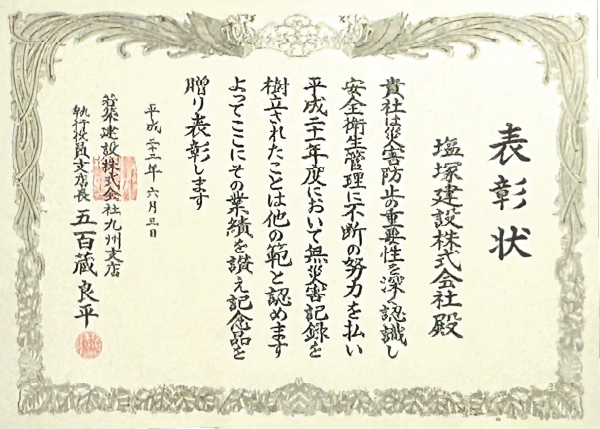 表彰状
塩塚建設株式会社殿
貴社は災害防止の重要性を深く認識し
安全衛生管理に不断の努力を払い
平成二十一年度において無災害記録を
樹立されたことは他の範と認めます
よってここにその業績を讃え記念品を
贈り表彰します
平成二十二年六月三日
若築建設株式会社九州支店
執行役員支店長 五百蔵良平